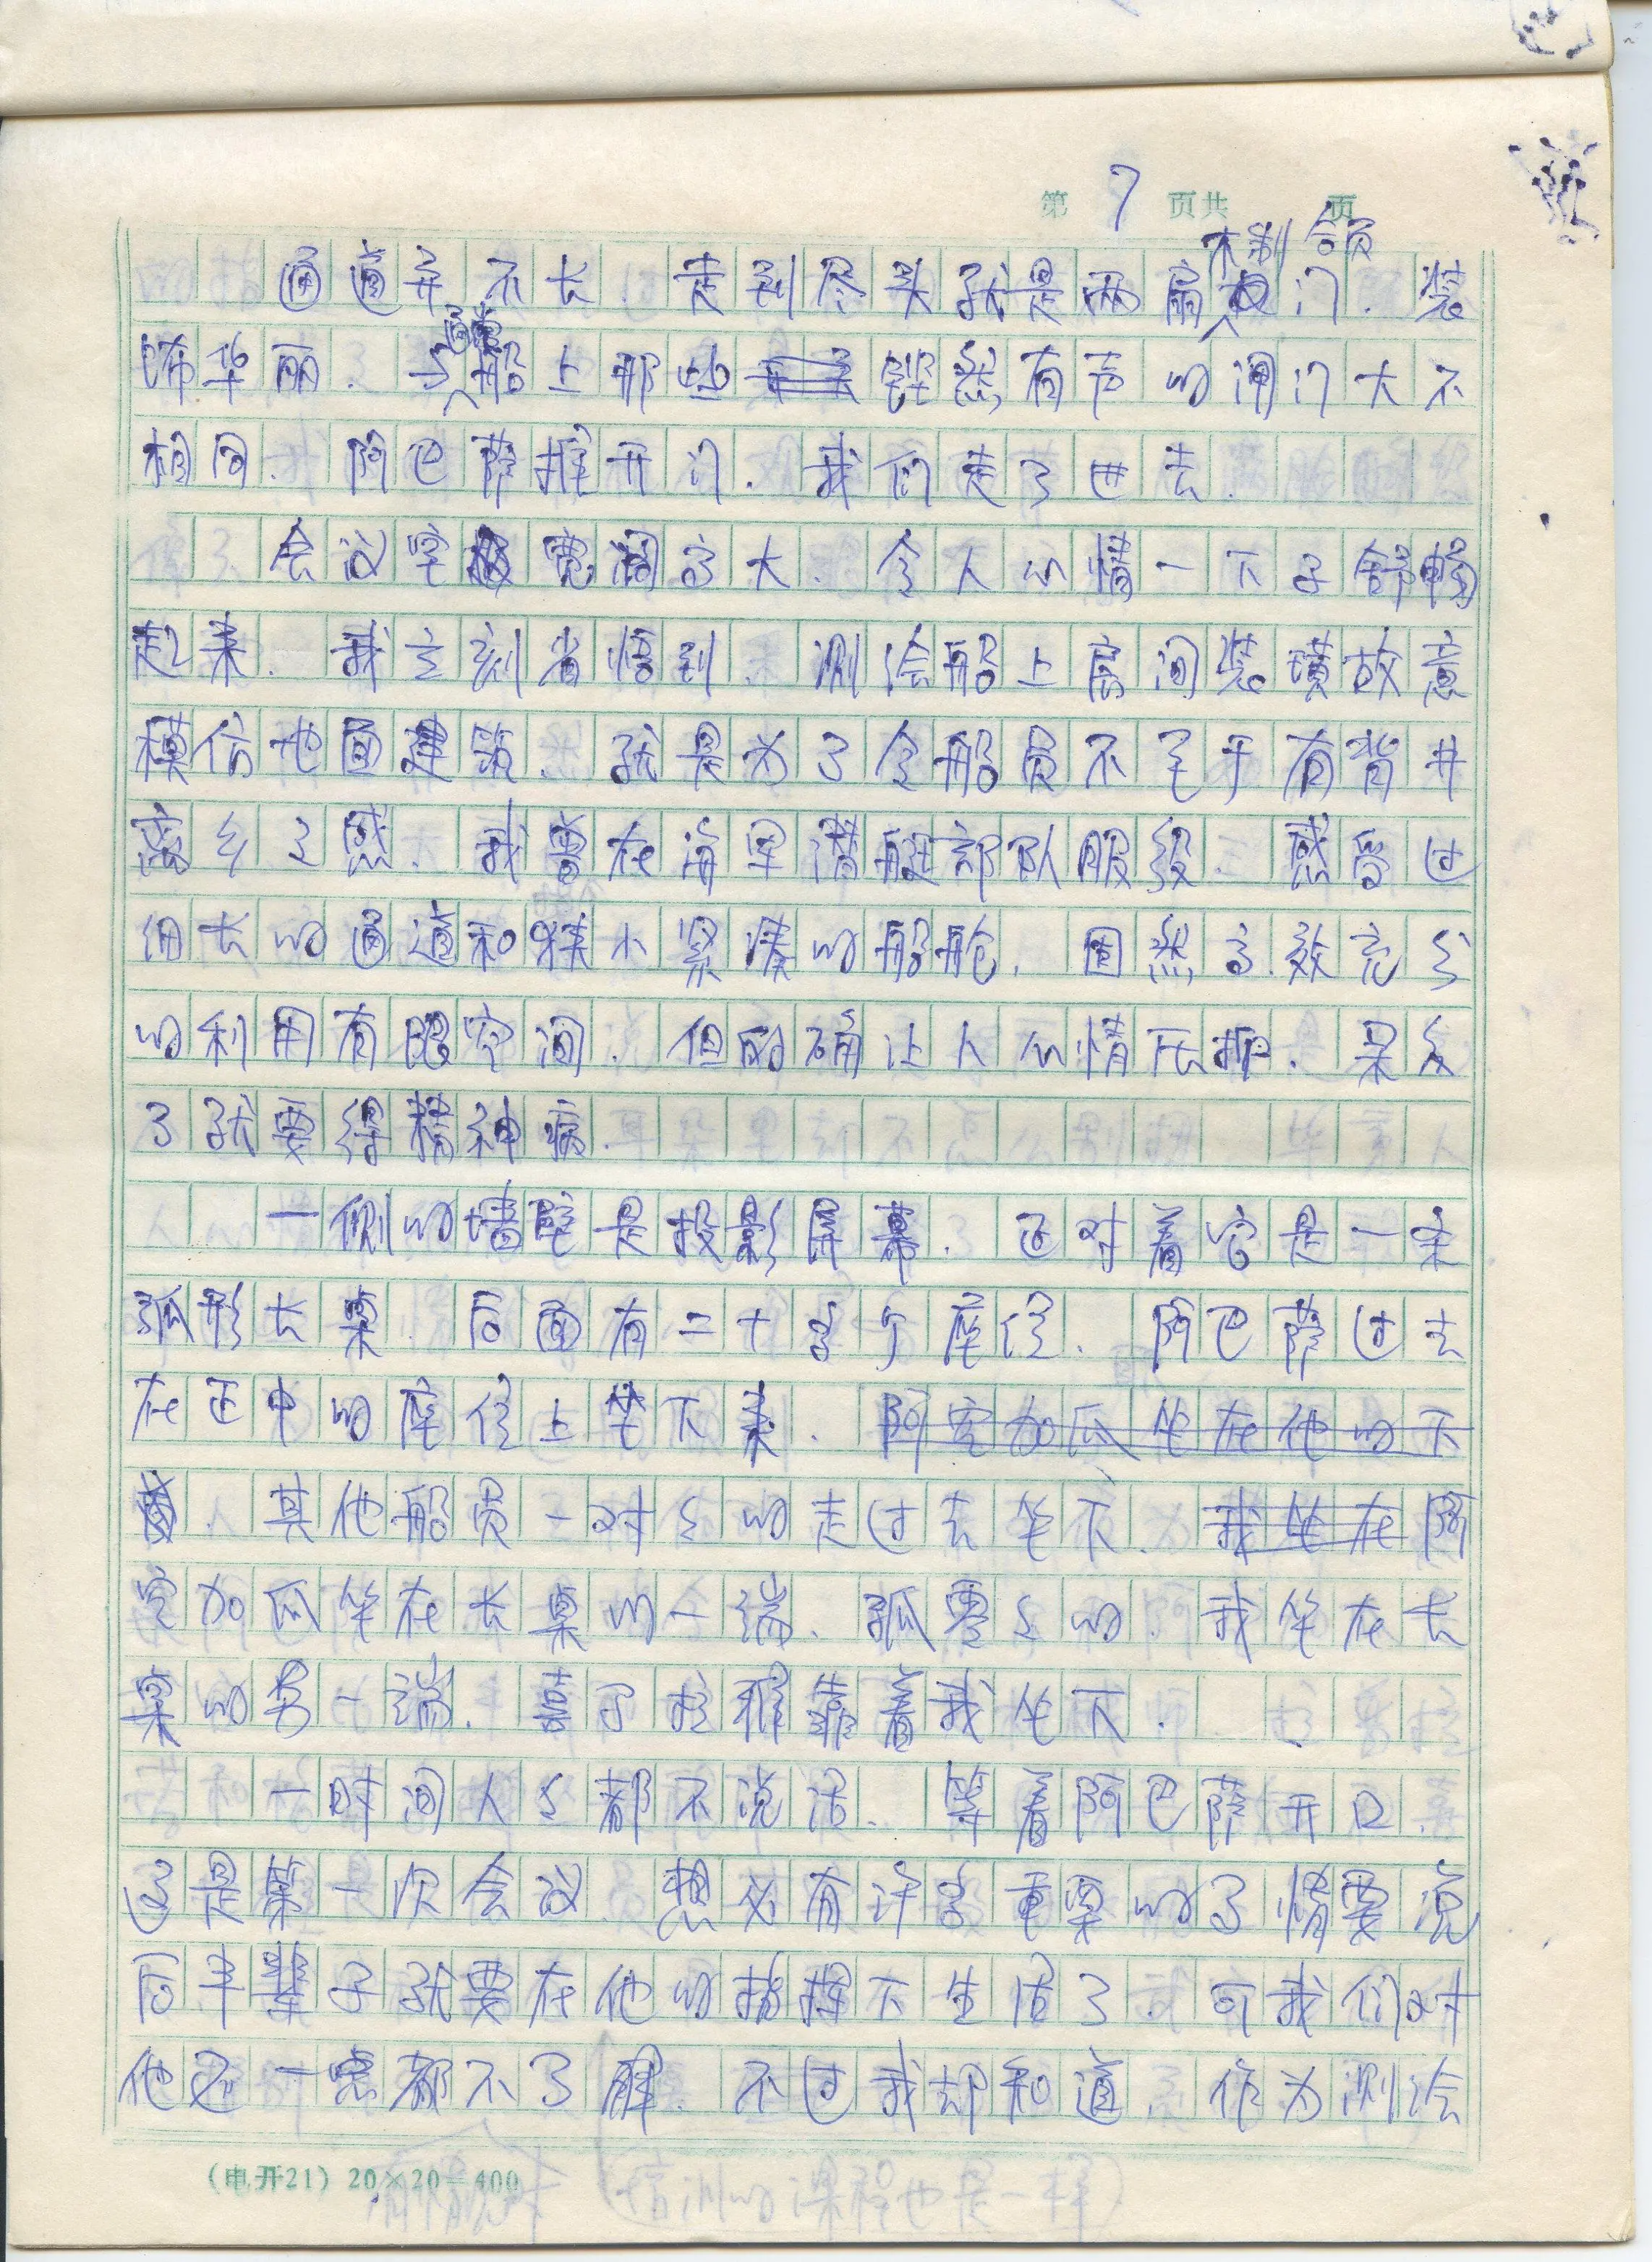 第 7 页共 页
通道并不长，走到尽头就是两扇木制大门，装
饰华丽，与通常船上那些铿然有声的闸门大不
相同。阿巴萨推开门，我们走了进去。
会议室宽阔高大，令人心情一下子舒畅
起来。我立刻省悟到，测绘船上房间装璜故意
模仿地面建筑，就是为了令船员不至于有背井
离乡之感。我曾在海军潜艇部队服役，感受过
细长的通道和狭小紧凑的船舱，固然高效充分
的利用有限空间，但的确让人心情压抑，呆久
了就要得精神病。
一侧的墙壁是投影屏幕，正对着它是一条
弧形长桌，后面有二十多个座位。阿巴萨过去
在正中的座位上坐下来，阿空加瓜坐在他的下
首，其他船员一对对的走过去坐下。我坐在阿
空加瓜坐在长桌的一端，孤零零的，我坐在长
桌的另一端，喜马拉雅靠着我坐下。
一时间人人都不说话，等着阿巴萨开口。
这是第一次会议，想必有许多重要的事情要说
后半辈子就要在他的指挥下生活了，可我们对
他还一点都不了解。不过我却知道，作为测绘
(电开21) 20×20=400